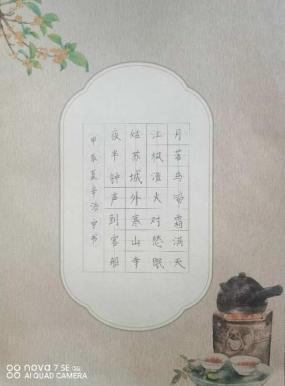 月落乌啼霜满天
江枫渔火对愁眠
姑苏城外寒山寺
夜半钟声到客船
nova 7 SE 5G
AI QUAD CAMERA